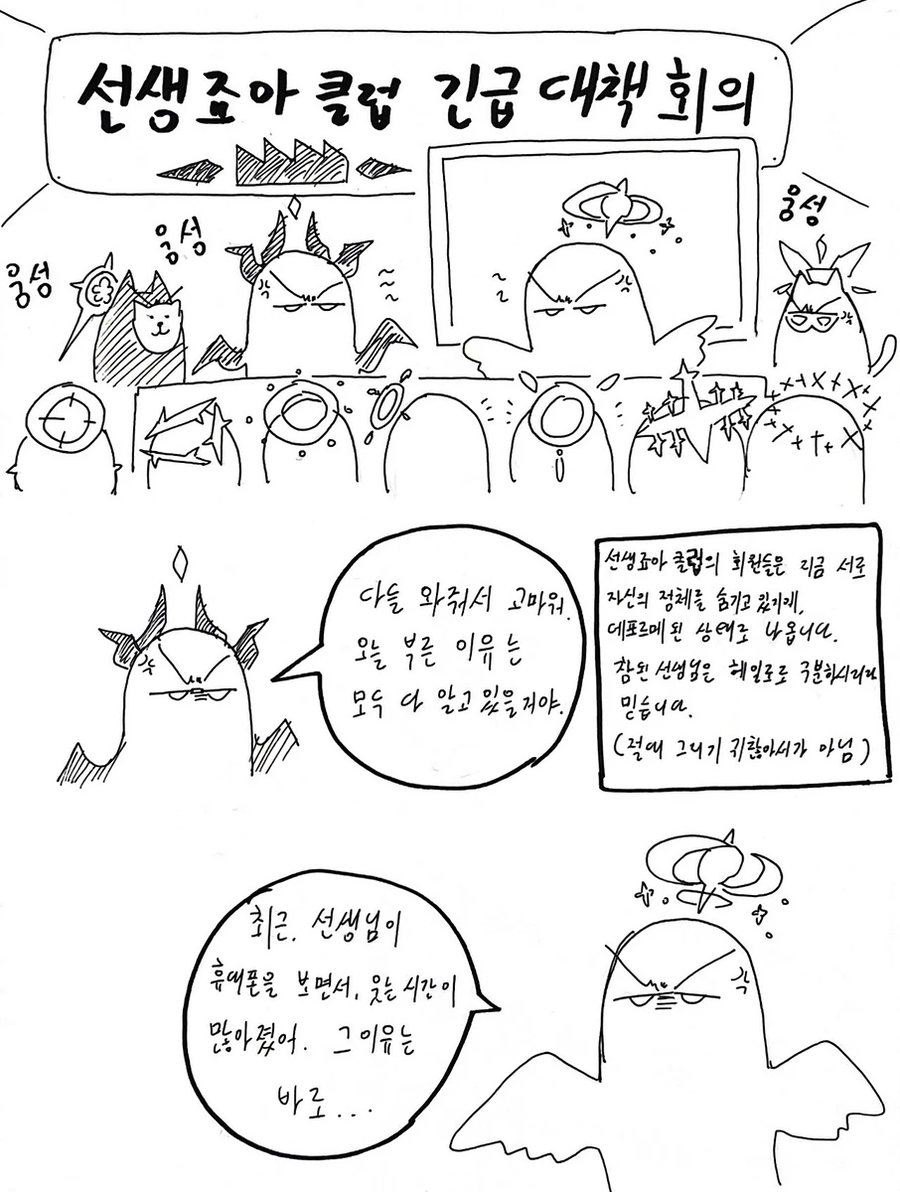 선생죠아 클럽 긴급 대책 회의
웅성
웅성
웅성
다들 와줘서 고마워.
오늘 부른 이유는
모두 다 알고 있을거야.
선생죠아 클럽의 회원들은 지금 서로
자신의 정체를 숨기고 있기에,
데포르메 된 상태로 나옵니다.
참된 선생님은 헤일로로 구분하시리라
믿습니다.
(절대 그리기 귀찮아서가 아님)
최근, 선생님이
휴대폰을 보면서, 웃는 시간이
많아졌어. 그 이유는
바로...